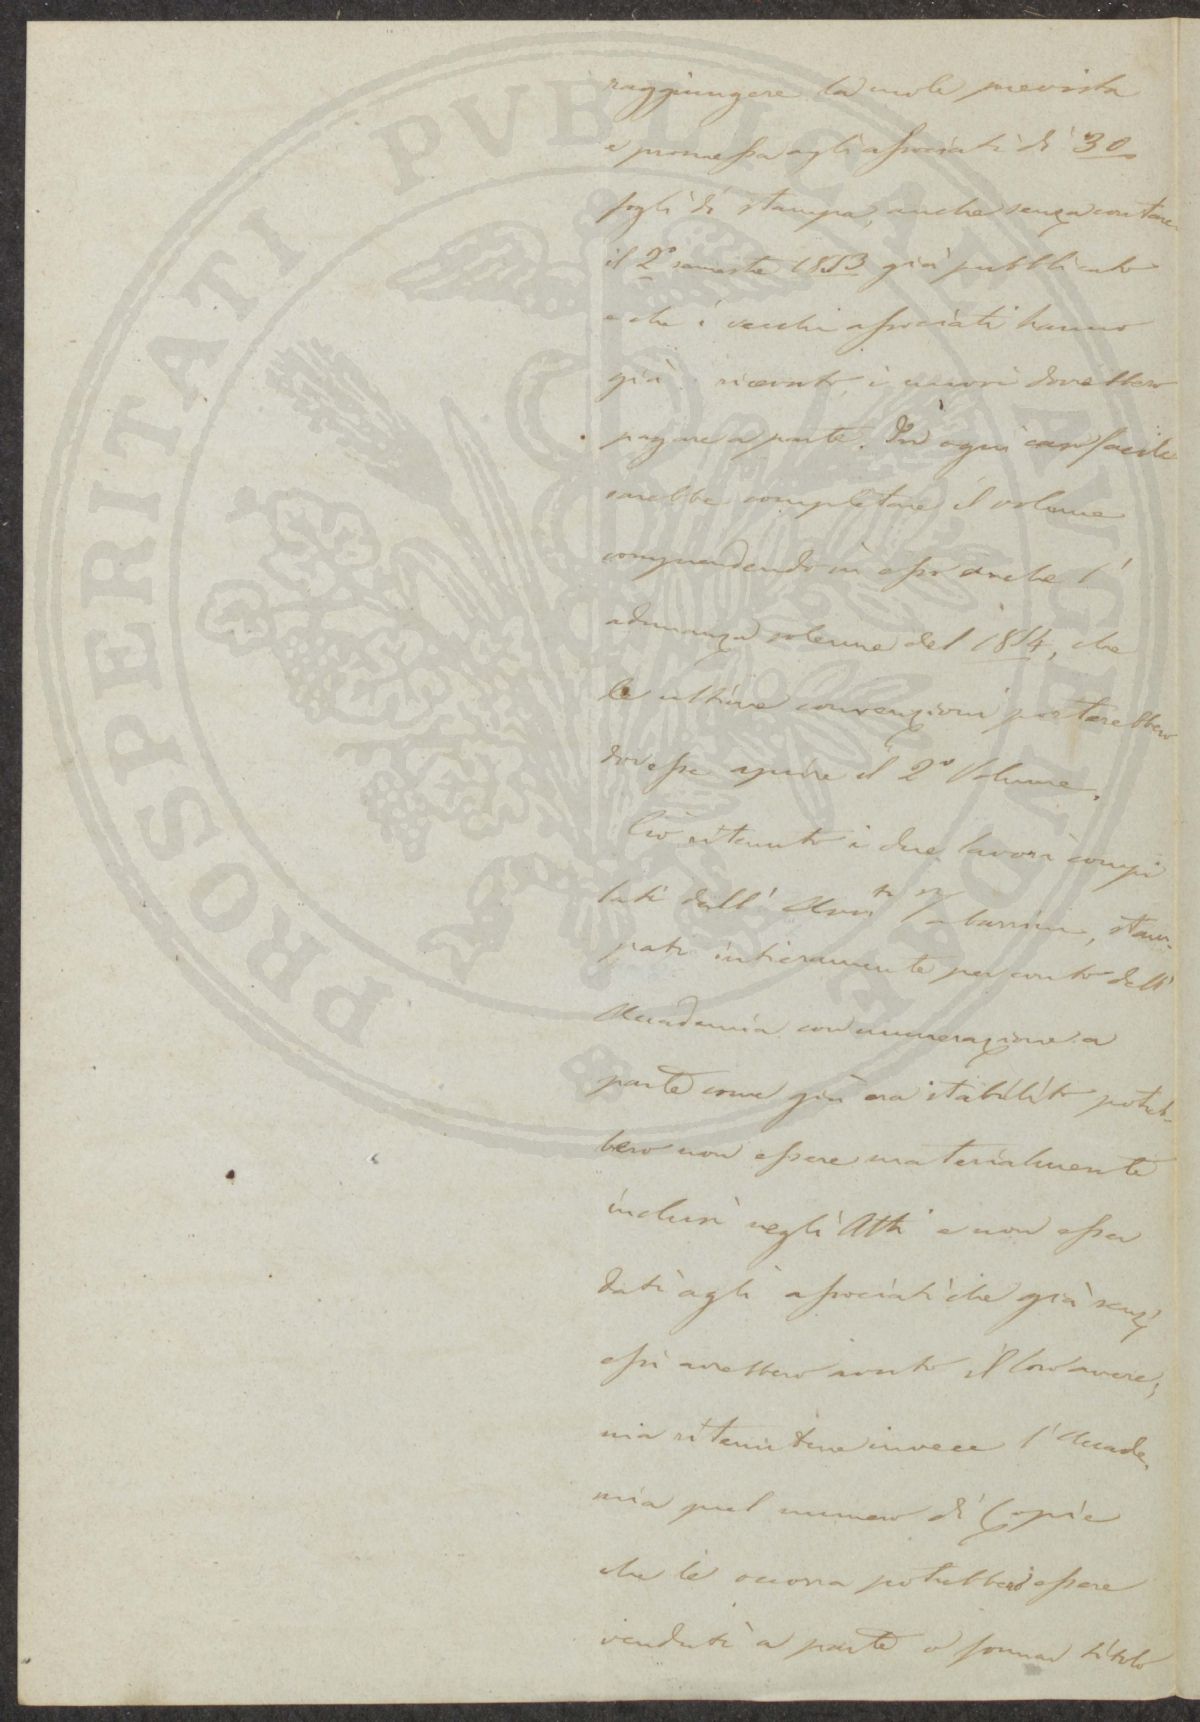 raggiungere la mole prevista
e promessa agli associati di 30
fogli di stampa, anche senza contare
il 2° semestre 1853 già pubblicato
e che i vecchi associati hanno
già ricevuto, i nuovi dovrebbero
pagare a parte. In ogni caso facile
sarebbe completare il volume
comprendendo in esso anche l'
adunanza solenne del 1854, che
le ultime convenzioni porterebbero
dovesse aprire il 2° Volume.
Ciò ritenuto i due lavori compi
lati dall' Tabarrini, stam-
pati intieramente per conto dell'
Accademia con numerazione a
parte come già era stabilito potreb-
bero non essere materialmente
inclusi negli Atti e non esser
dati agli associati che già senz'
essi avrebbero avuto il loro avere;
ma ritenutene invece l'Accade-
mia quel numero di Copie
che le occorra potrebbero essere
venduti a parte o formar titolo
PROSPERITATI PVBLICAE AVGENDAE